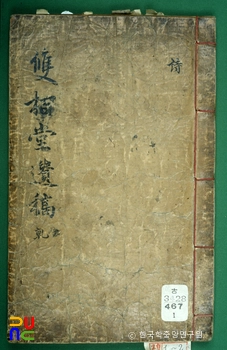 詩
雙堂遺稿 乾
古
3428
467
1
한국학중앙연구원